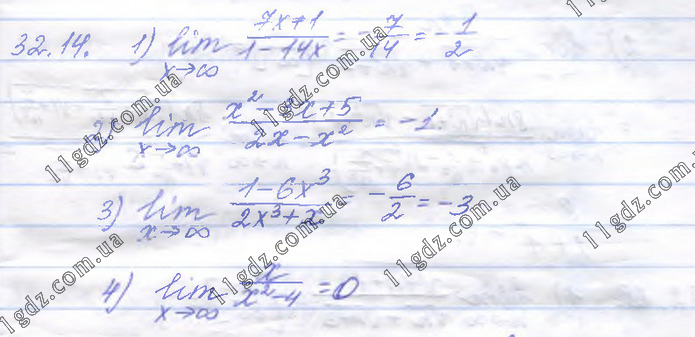 32.14. 1) lim x→∞ (7x+1)/(1-14x) = -7/14 = -1/2
lim x→∞ (x² - x+5)/(2x-x²) = -1
3) lim x→∞ (1-6x³)/(2x³+ = -6/2 = -3
4) lim x→∞ x/(x²-4) = 0
11gdz.com.ua
11gdz.com.ua
11gdz.com.ua
11gdz.com.ua
11gdz.com.ua
11gdz.com.ua